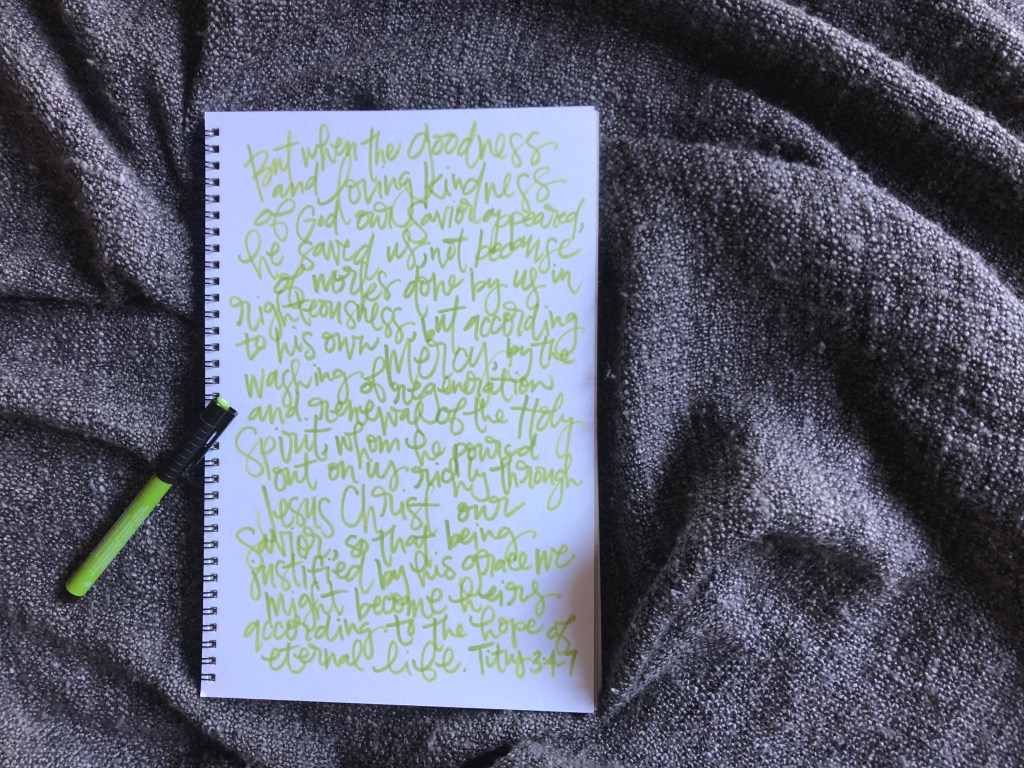 But when the goodness
and loving kindness
of God our Savior appeared,
he saved us, not because
of works done by us in
righteousness, but according
to his own mercy, by the
washing of regeneration
and renewal of the Holy
Spirit, whom he poured
out on us richly through
Jesus Christ our
Savior, so that being
justified by his grace we
might become heirs
according to the hope of
eternal life. Titus 3:4-7